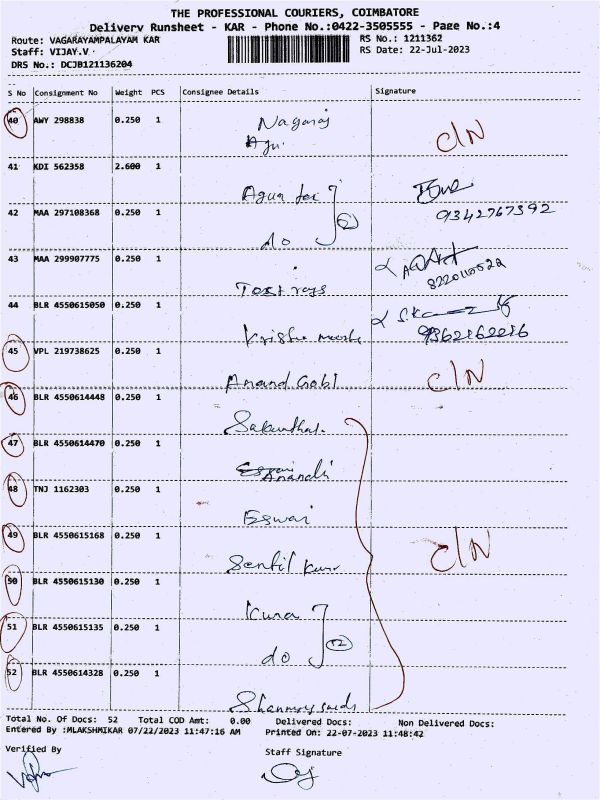 THE PROFESSIONAL COURIERS, COIMBATORE
Delivery Runsheet - KAR - Phone No.:0422-3505555 - Page No.:4
Route: VAGARAYAMPALAYAM KAR
RS No.: 1211362
Staff: VIJAY.V
RS Date: 22-Jul-2023
DRS No.: DCJB121136204
S No Consignment No Weight PCS Consignee Details Signature
40 AWY 298838 0.250 1 Nagaraj
C/N
41 KDI 562358 2.600 1
42 MAA 297108368 0.250 1
9342767392
do
43 MAA 299907775 0.250 1
44 BLR 4550615050 0.250 1
9362162216
45 VPL 219738625 0.250 1
Anand Gobi C/N
46 BLR 4550614448 0.250 1
47 BLR 4550614470 0.250 1
Anandhi
48 TNJ 1162303 0.250 1
Eswari
49 BLR 4550615168 0.250 1
C/N
Senthil Kumar
50 BLR 4550615130 0.250 1
51 BLR 4550615135 0.250 1
do
52 BLR 4550614328 0.250 1
Total No. Of Docs: 52 Total COD Amt: 0.00 Delivered Docs: Non Delivered Docs:
Entered By :MLAKSHMIKAR 07/22/2023 11:47:16 AM Printed On: 22-07-2023 11:48:42
Verified By Staff Signature